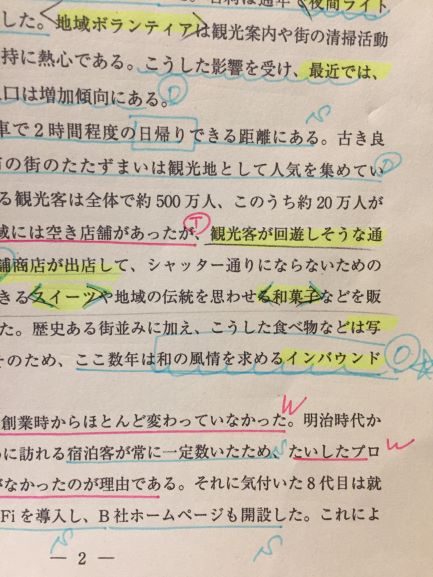 夜間ライト
した。〈地域ボランティア〉は観光案内や街の清掃活動
持に熱心である。こうした影響を受け、最近では、
人口は増加傾向にある。O
車で2時間程度の日帰りできる距離にある。古き良
S
の街のたたずまいは観光地として人気を集めてい
O
る観光客は全体で約500万人、このうち約20万人が
域には空き店舗があったが、観光客が回遊しそうな通
T
舗商店が出店して、シャッター通りにならないための
きるスイーツや地域の伝統を思わせる和菓子などを販
た。歴史ある街並みに加え、こうした食べ物などは写
そのため、ここ数年は和の風情を求めるインバウンド
O
創業時からほとんど変わっていなかった。明治時代か
W
に訪れる宿泊客が常に一定数いたため、たいしたプロ
S
W
がなかったのが理由である。それに気付いた8代目は就
Fiを導入し、B社ホームページも開設した。これによ
S
S
— 2 —